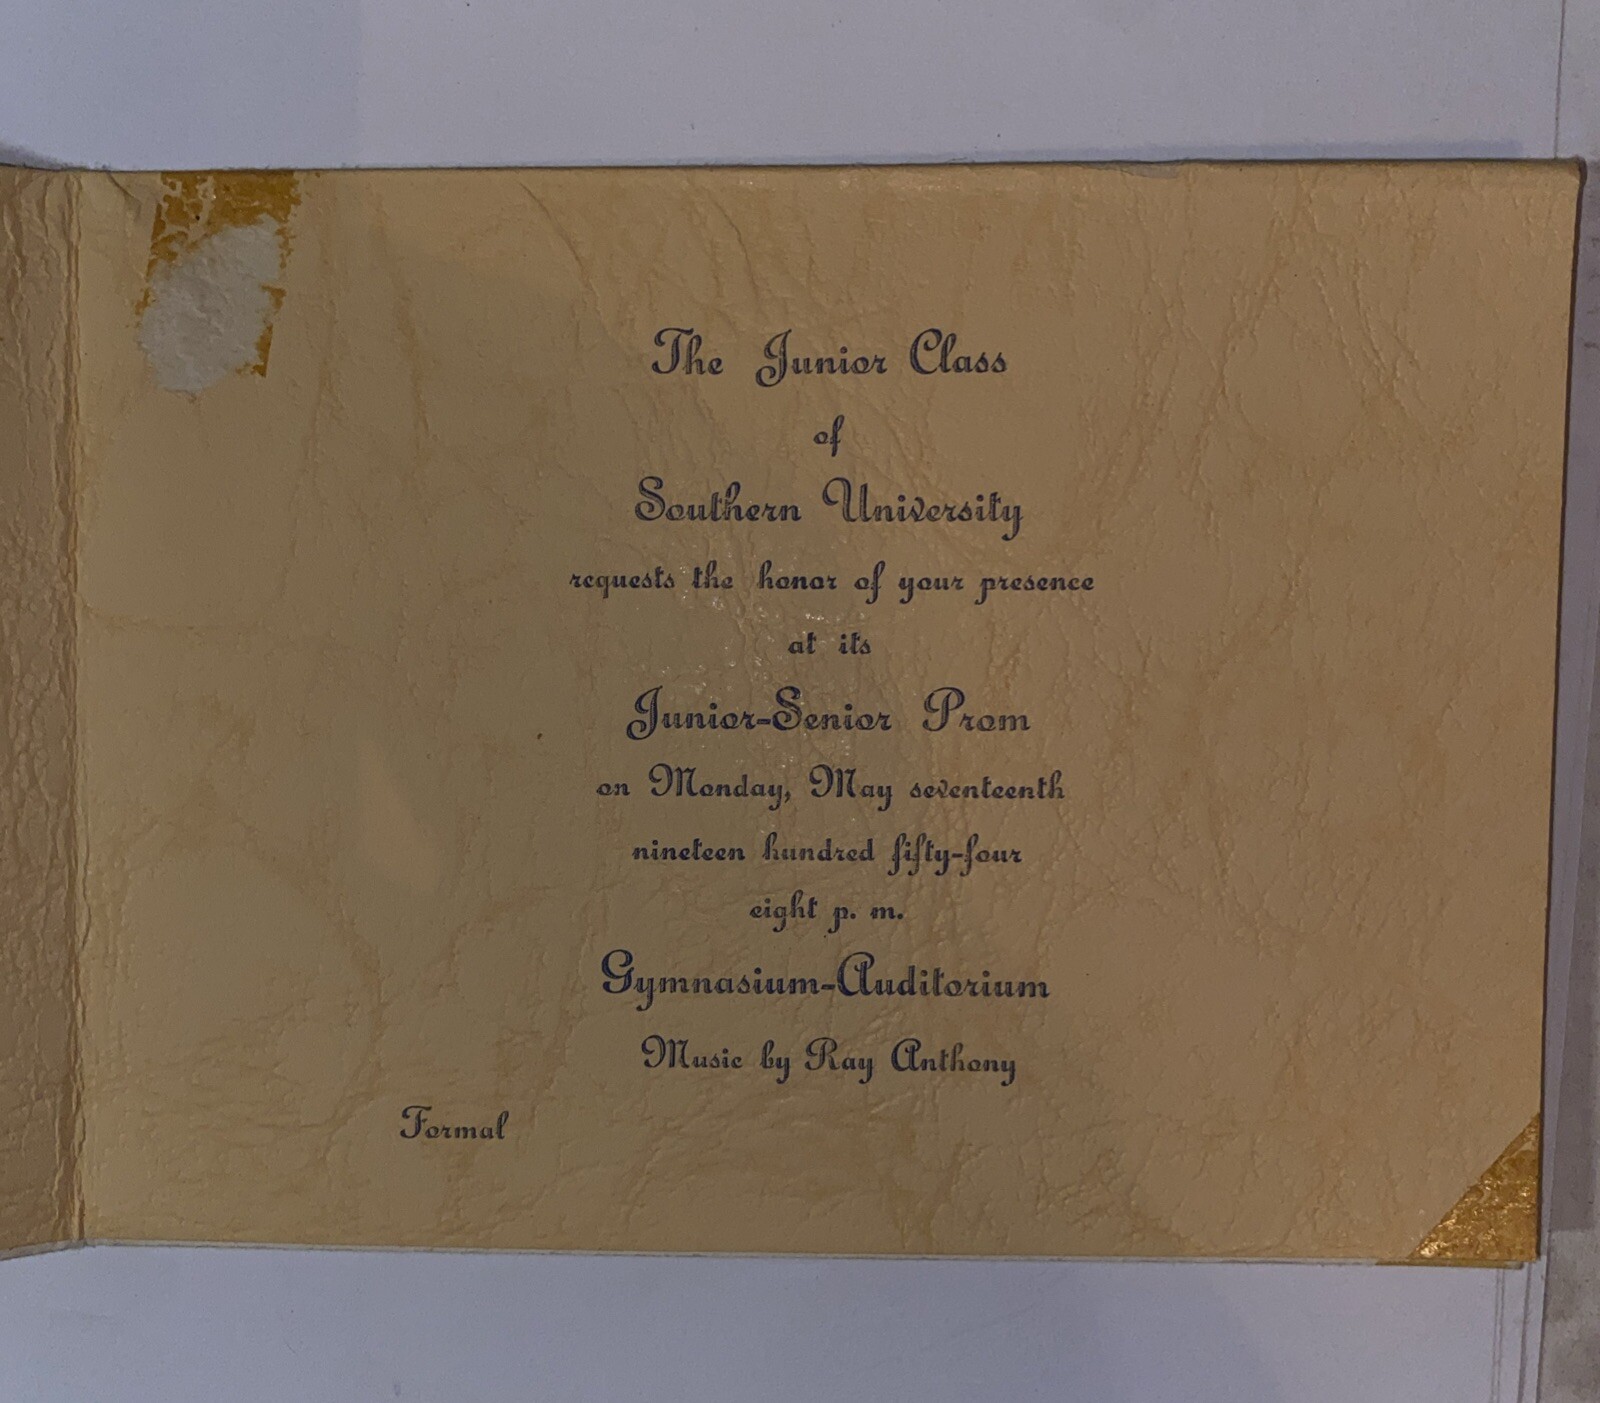 The Junior Class
of
Southern University
requests the honor of your presence
at its
Junior-Senior Prom
on Monday, May seventeenth
nineteen hundred fifty-four
eight p. m.
Gymnasium-Auditorium
Music by Ray Anthony
Formal